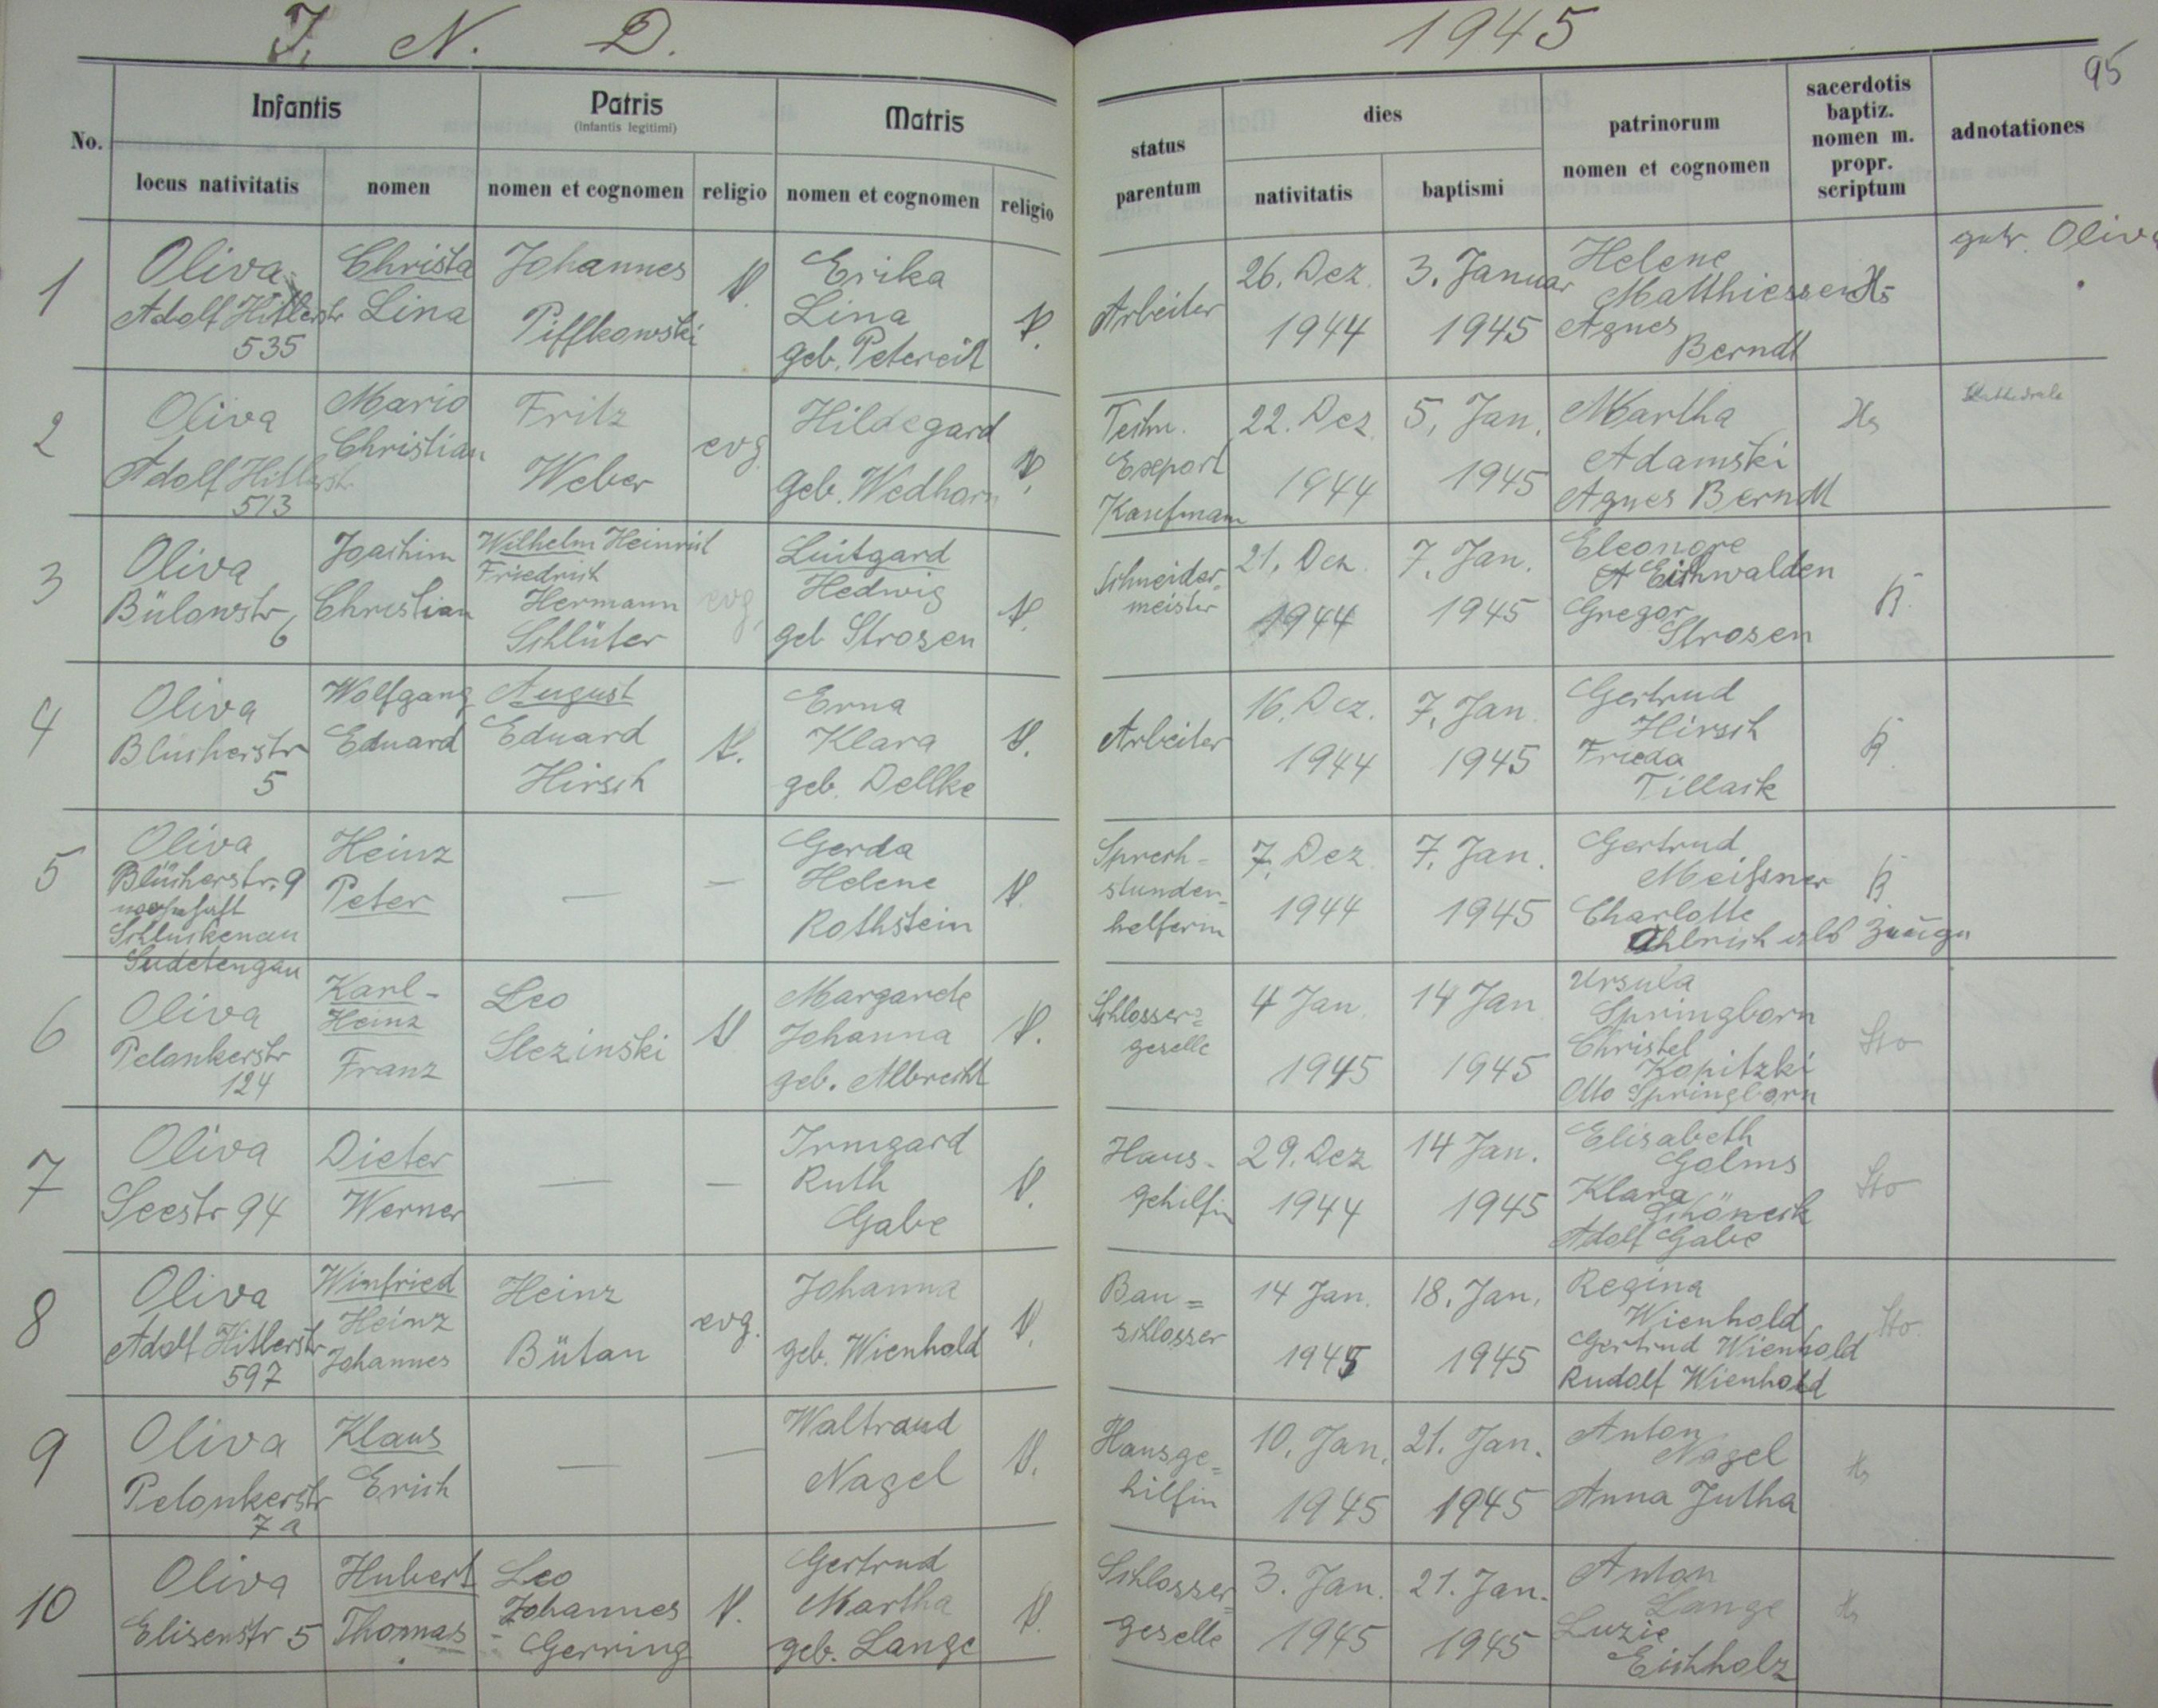 J. N. D.
1945
95
No.
Infantis
locus nativitatis
nomen
Patris
(infantis legitimi)
nomen et cognomen
religio
Matris
nomen et cognomen
religio
status
parentum
dies
nativitatis
baptismi
patrinorum
nomen et cognomen
sacerdotis
baptiz.
nomen m.
propr.
scriptum
adnotationes
1
Oliva
Adolf Hitlerstr
535
Christa
Lina
Johannes
Piffkowski
Erika
Lina
geb. Petereit
Arbeiter
26. Dez
1944
3. Januar
1945
Helene
Matthiessen
Agnes
Berndt
Hs
Oliva
2
Oliva
Adolf Hitlerstr
513
Mario
Christian
Fritz
Weber
evg.
Hildegard
geb. Wedhorn
Techn.
Export
Kaufmann
22. Dez
1944
5. Jan.
1945
Martha
Adamski
Agnes Berndt
Hs
Kathedrale
3
Oliva
Bülowstr
6
Joachim
Christian
Wilhelm Heinrich
Friedrich
Hermann
Schlüter
evg.
Luitgard
Hedwig
geb Strosen
Schneider-
meister
21. Dez
1944
7. Jan.
1945
Eleonore
Eichwalden
Gregor
Strosen
4
Oliva
Blücherstr
5
Wolfgang
Eduard
August
Eduard
Hirsch
Erna
Klara
geb. Dellke
Arbeiter
16. Dez.
1944
7. Jan
1945
Gertrud
Hirsch
Frieda
Tillack
5
Oliva
Blücherstr. 9
wohnhaft
Schluckenau
Sudetengau
Heinz
Peter
—
—
Gerda
Helene
Rothstein
Sprech=
stunden-
helferin
7. Dez
1944
7. Jan.
1945
Gertrud
Meißner
Charlotte
Ohlrich als
6
Oliva
Pelonkerstr
124
Karl-
Heinz
Franz
Leo
Slezinski
Margarete
Johanna
geb. Albrecht
Schlosser=
geselle
4 Jan.
1945
14 Jan
1945
Ursula
Springborn
Christel
Kopitzki
Otto Springborn
Sto
7
Oliva
Seestr 94
Dieter
Werner
—
—
Irmgard
Ruth
Gabe
Haus-
gehilfin
29. Dez
1944
14 Jan.
1945
Elisabeth
Golms
Klara
Schöneck
Adolf Gabe
Sto
8
Oliva
Adolf Hitlerstr
597
Winfried
Heinz
Johannes
Heinz
Bütan
evg.
Johanna
geb. Wienhold
Bau=
schlosser
14 Jan.
1945
18. Jan.
1945
Regina
Wienhold
Gertrud Wienhold
Rudolf Wienhold
Sto
9
Oliva
Pelonkerstr
7a
Klaus
Erich
—
—
Waltraud
Nagel
Hausge=
hilfin
10. Jan.
1945
21. Jan.
1945
Anton
Nagel
Anna Jutha
Hs
10
Oliva
Elisenstr 5
Hubert
Thomas
Leo
Johannes
Gerring
Gertrud
Martha
geb. Lange
Schlosser=
geselle
3. Jan.
1945
21. Jan.
1945
Anton
Lange
Luzie
Eichholz
Hs